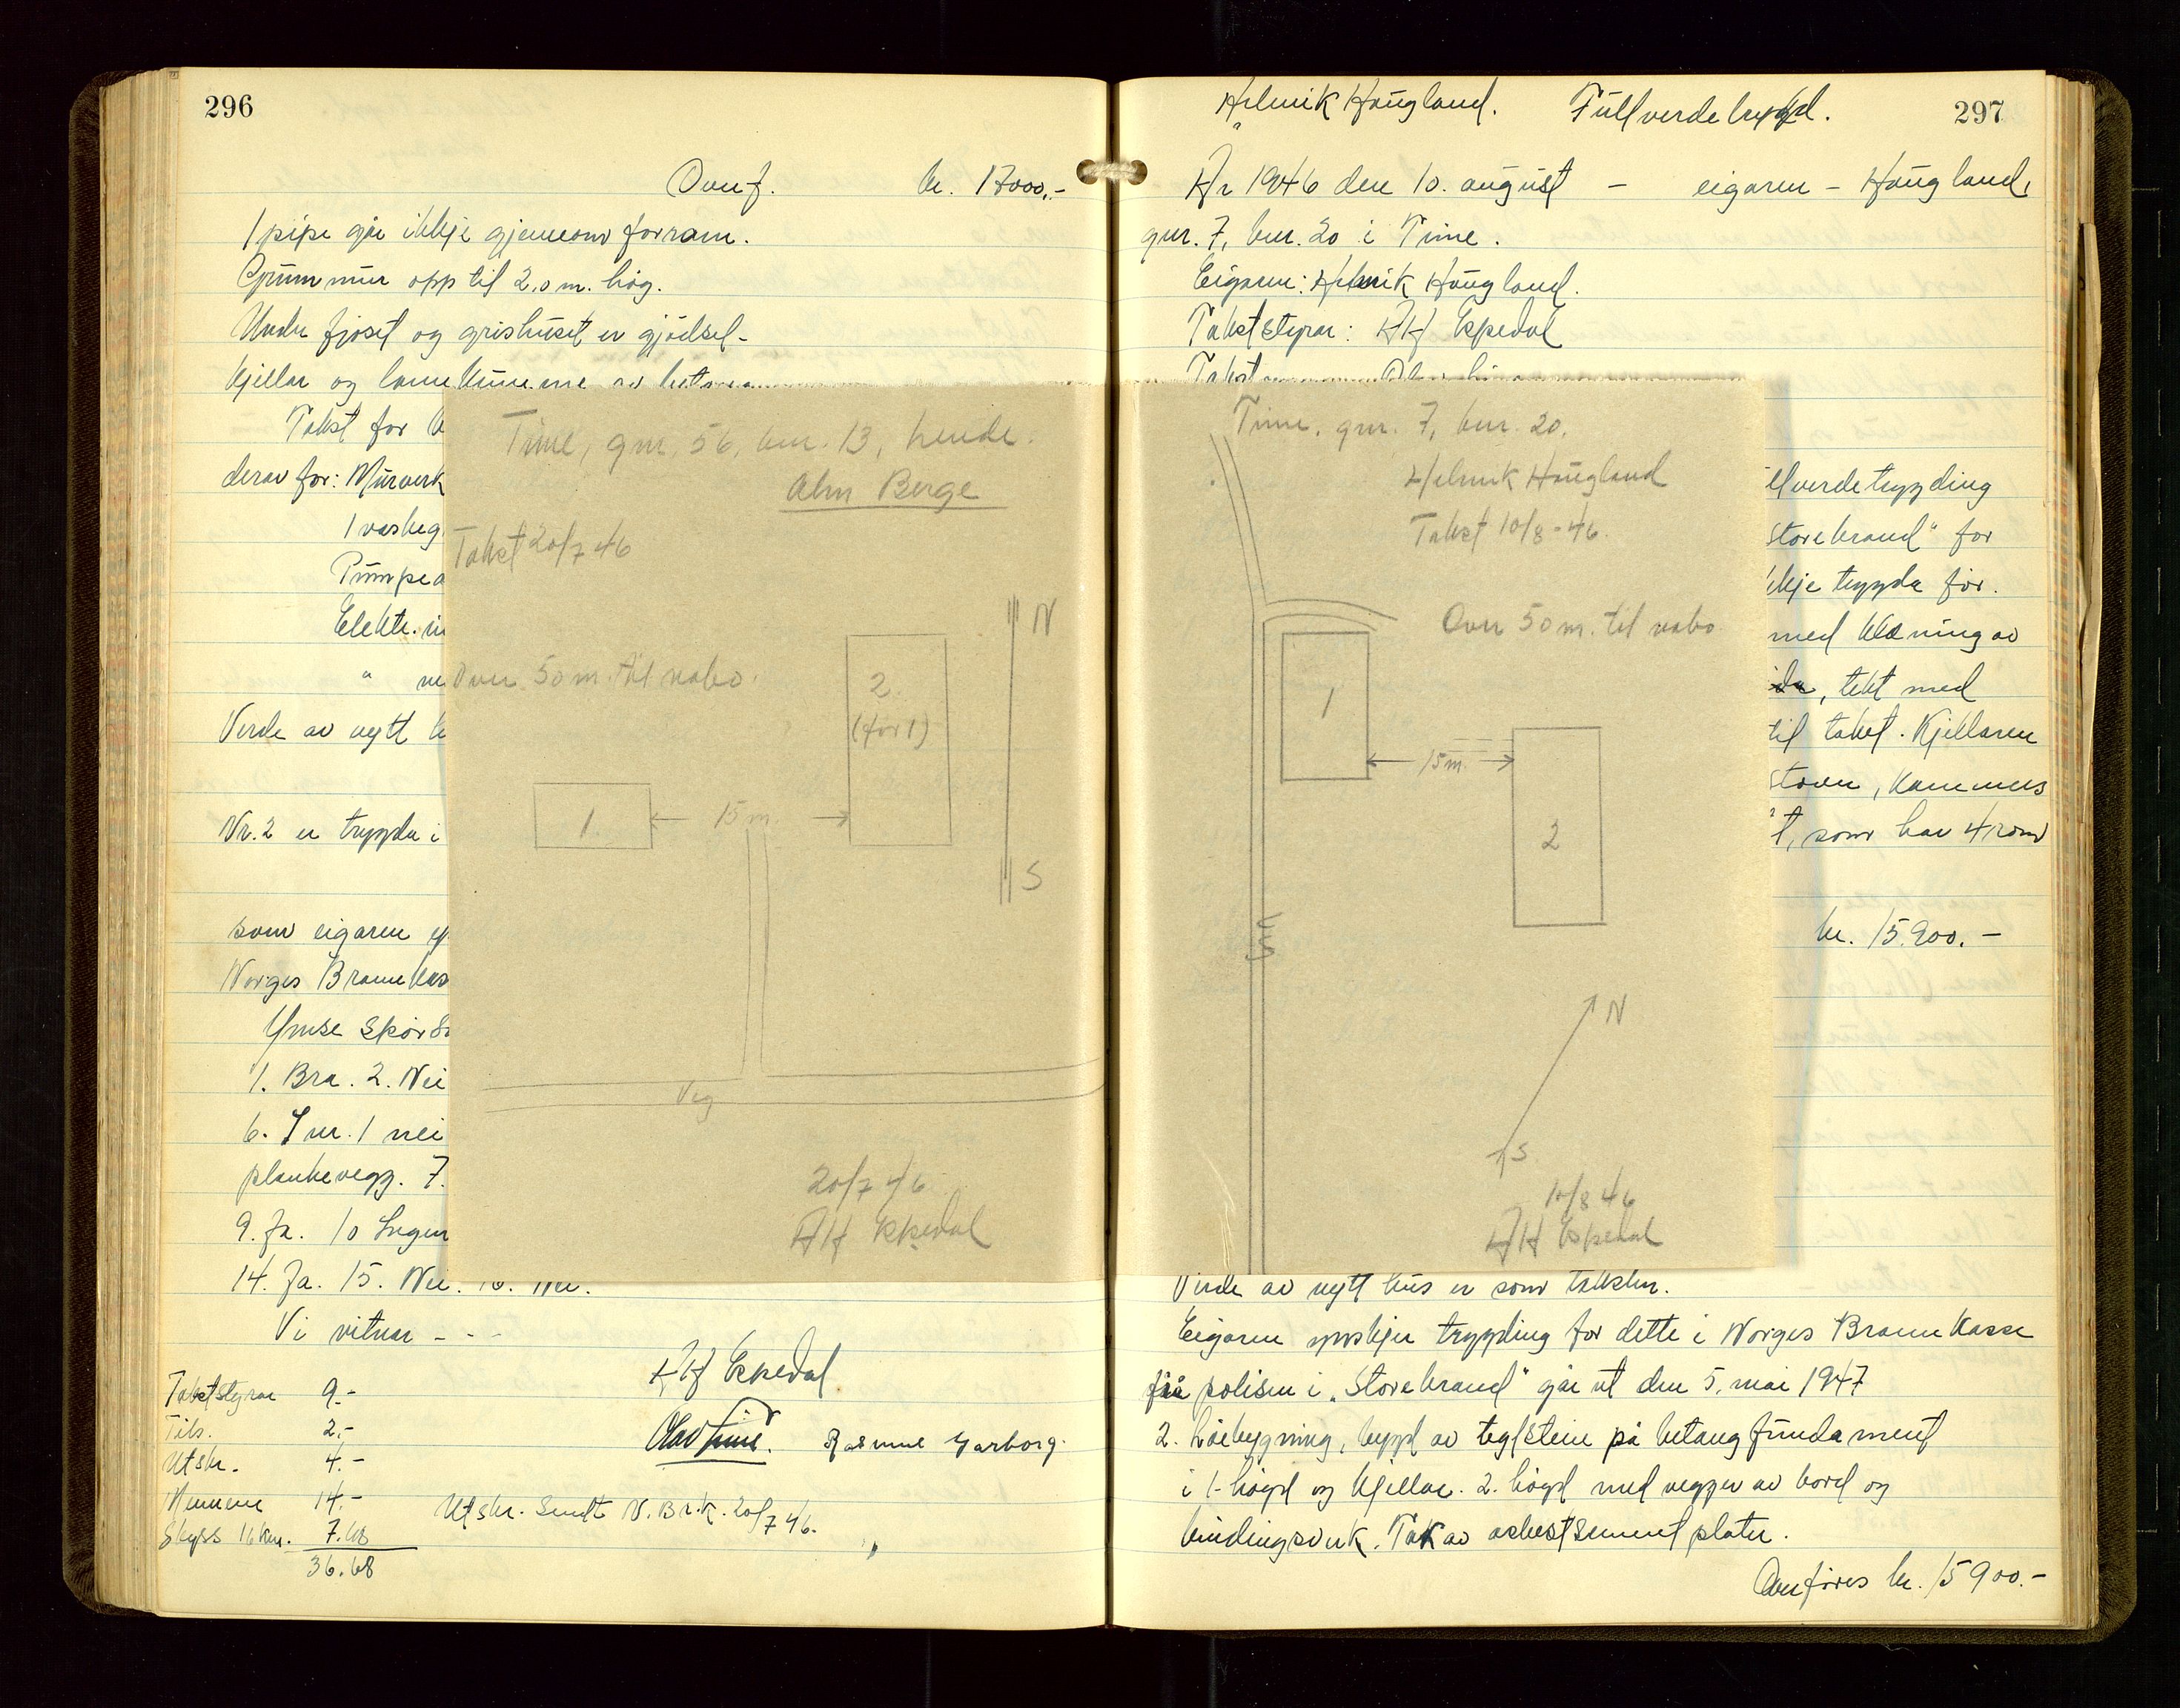 296
Overf. kr. 17000.-
1 pipe går ikkje gjenom forram.
Grunnmur opp til 2,0 m. høg.
Under fjøset og grishuset er gjødsel-
kjellar og landkumme av
Takst for
derav for: Murverk
1 vaskeg
Pumpea
Elektr. in
"
Over 50 m. til nabo.
Verde av nytt
Nr. 2 er trygda i
som eigaren
Norges Brannkas
Ymse spørs
1. Bra. 2. Nei
6. I nr. 1 nei
plankevegg. 7.
9. Ja. 10
14. Ja. 15. Nei. 16. Nei.
Vi vitnar - - -
AH Espedal
Olav Time. Rasmus Garborg.
Takststyrar 9.-
Tils. 2.-
Utskr. 4.-
Mennene 14.-
Skyss 16 km. 7.68
36.68
Utskr. sendt N.Br.k. 20/7 46.
Time, gnr. 56, bnr. 13,
Alm Berge
Takst 20/7 46
N
2.
(før 1)
1.
15 m.
S
Veg
20/7 46
AH Espedal
297
Helmik Haugland. Fullverde trygd.
År 1946 den 10. august - eigaren - Haugland,
gnr. 7, bnr. 20 i Time.
Eigar: Helmik Haugland.
Takststyrar: AH Espedal
Takst
Time, gnr. 7, bnr. 20.
Helmik Haugland
Takst 10/8-46.
Over 50 m. til nabo
1
15 m.
2
Veg
N
S
10/8 46
AH Espedal
llverdetrygding
Storebrand" for
kkje trygda før.
med klædning av
tekt med
til taket. Kjellaren
stover, kammers
t, som har 4 rom
kr. 15.900.-
Verde av nytt hus er som taksten.
Eigaren ynskjer trygding for dette i Norges Brannkasse
frå polisen i "Storebrand" går ut den 5. mai 1947
2. Løebygning, bygd av teglstein på betong fundament
i 1. høgd og kjellar. 2. høgd med vegger av bord og
bindingsverk. Tak av asbestsement plater.
Overføres kr. 15900.-